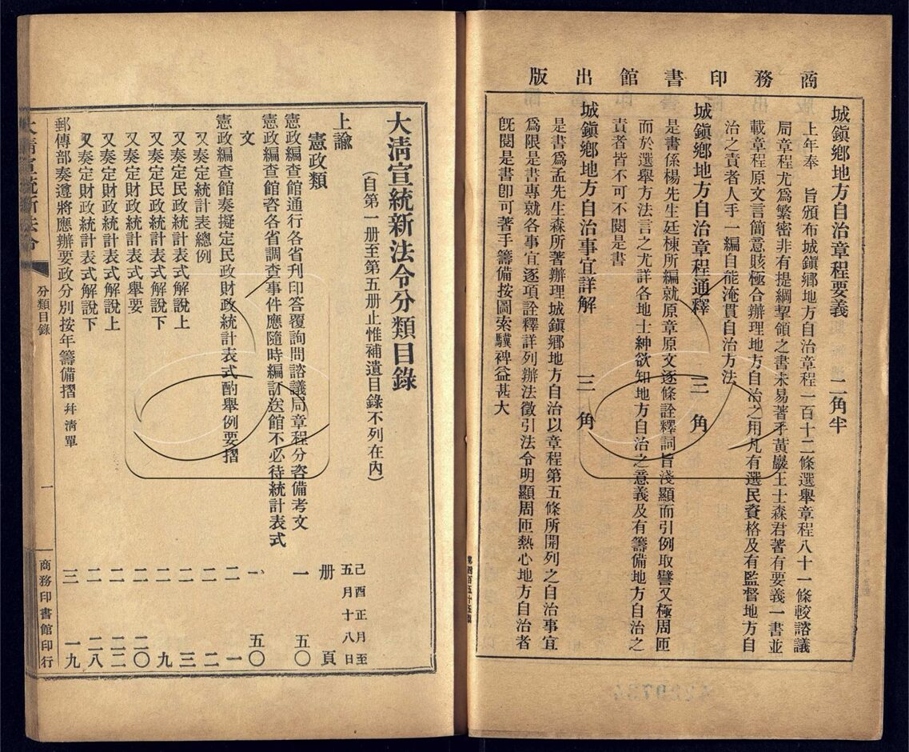 商務印書館出版
城鎭鄉地方自治章程要義 二角半
上年奉 旨頒布城鎭鄉地方自治章程一百十二條選舉章程八十一條較諮議
局章程尤爲繁密非有提綱挈領之書未易著手黃巖王士森君著有要義一書並
載章程原文言簡意賅極合辦理地方自治之用凡有選民資格及有監督地方自
治之責者人手一編自能淹貫自治方法
城鎭鄉地方自治章程通釋 三角
是書係楊先生廷棟所編就原章原文逐條詮釋詞旨淺顯而引例取譬又極周匝
而於選舉方法言之尤詳各地士紳欲知地方自治之意義及有籌備地方自治之
責者皆不可不閱是書
城鎭鄉地方自治事宜詳解 三角
是書爲孟先生森所著辦理城鎭鄉地方自治以章程第五條所開列之自治事宜
爲限是書專就各事宜逐項詮釋詳列辦法徵引法令明顯周匝熱心地方自治者
旣閱是書卽可著手籌備按圖索驥裨益甚大
大淸宣統新法令分類目錄
(自第一册至第五册止惟補遺目錄不列在內)
己酉正月至
五月十八日
上諭 册 頁
憲政類
憲政編查館通行各省刋印答覆詢問諮議局章程分咨備考文 一 五〇
憲政編查館咨各省調查事件應隨時編訂送館不必待統計表式
文 一 五〇
憲政編查館奏擬定民政財政統計表式酌舉例要摺 二 一
又奏定統計表總例 二 二
又奏定民政統計表式解說上 二 三
又奏定民政統計表式解說下 二 九
又奏定財政統計表舉要 二 二〇
又奏定財政統計表式解說上 二 二二
又奏定財政統計表式解說下 二 二八
郵傳部奏遵將應辦要政分別按年籌備摺 幷淸單 三 一九
大淸宣統新法令
分類目錄
一
商務印書館印行